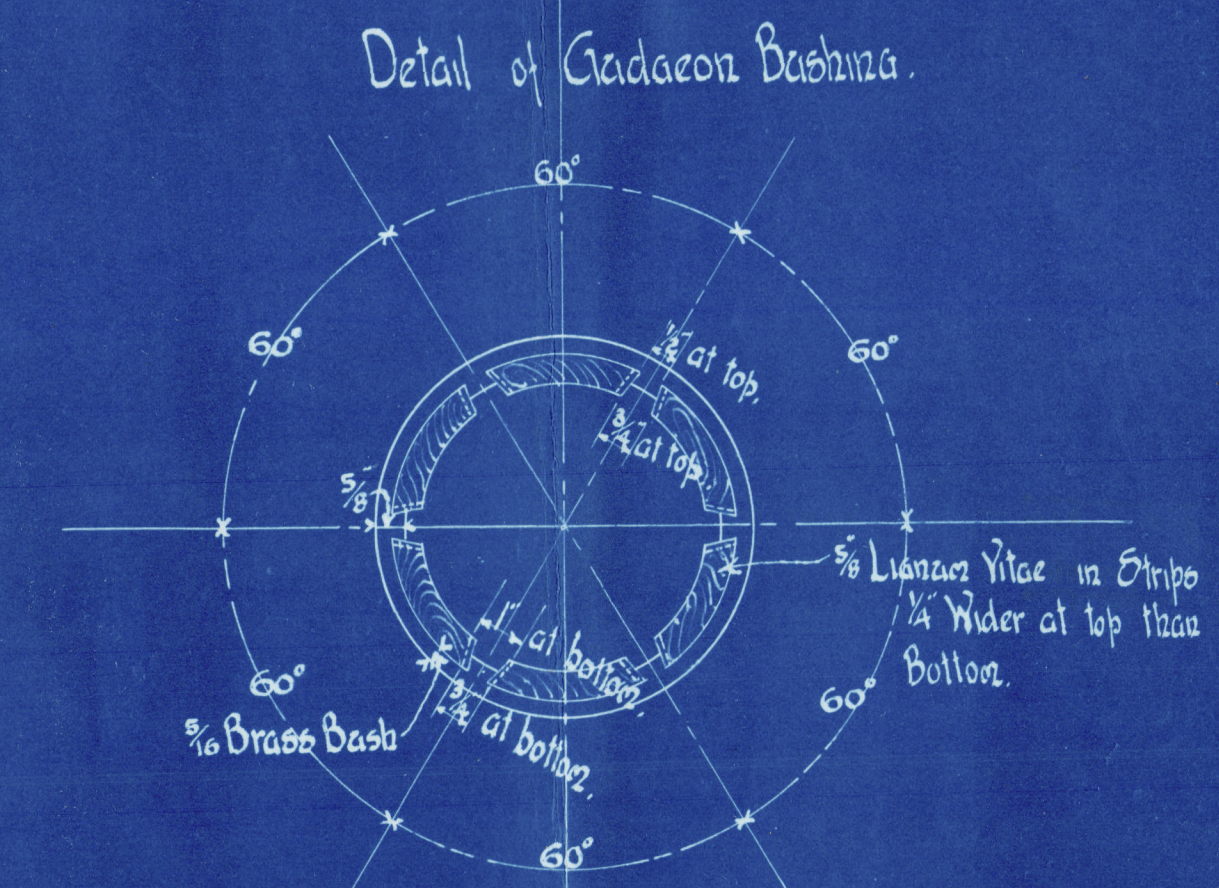 Detail of Gudgeon Bushing.
60°
60°
60°
1/2" at top.
3/4" at top.
5/8"
5/8" Lignum Vitae in Strips
1/4" Wider at top than
Bottom.
1" at bottom.
60°
60°
5/16 Brass Bush
3/4 at bottom.
60°